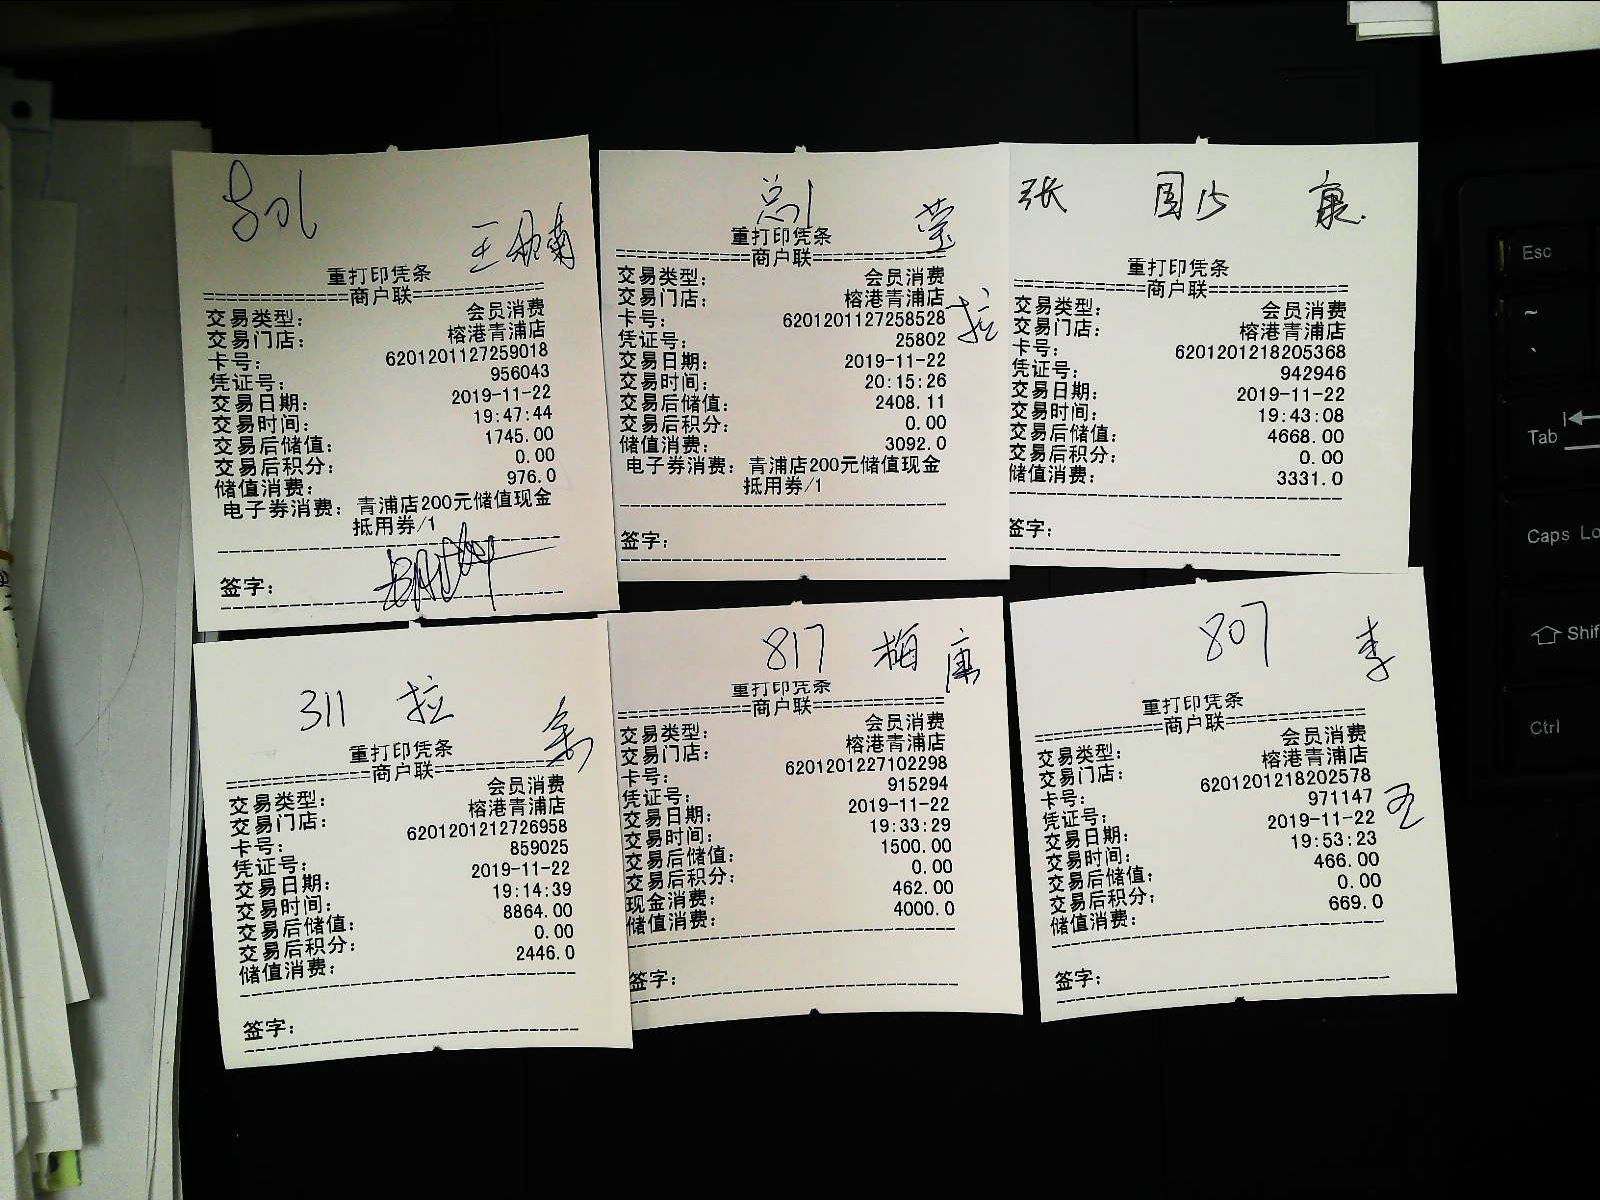 重打印凭条
==============商户联==============
交易类型： 会员消费
交易门店： 榕港青浦店
卡号： 6201201127259018
凭证号： 956043
交易日期： 2019-11-22
交易时间： 19:47:44
交易后储值： 1745.00
交易后积分： 0.00
储值消费： 976.0
电子券消费：青浦店200元储值现金
抵用券/1
签字：
总1 莹
重打印凭条
==============商户联==============
交易类型： 会员消费
交易门店： 榕港青浦店
拉
卡号： 6201201127258528
凭证号： 25802
交易日期： 2019-11-22
交易时间： 20:15:26
交易后储值： 2408.11
交易后积分： 0.00
储值消费： 3092.0
电子券消费：青浦店200元储值现金
抵用券/1
签字：
张 国15 康
重打印凭条
==============商户联==============
交易类型： 会员消费
交易门店： 榕港青浦店
卡号： 6201201218205368
凭证号： 942946
交易日期： 2019-11-22
交易时间： 19:43:08
交易后储值： 4668.00
交易后积分： 0.00
储值消费： 3331.0
签字：
311 拉
重打印凭条
==============商户联==============
交易类型： 会员消费
交易门店： 榕港青浦店
卡号： 6201201212726958
凭证号： 859025
交易日期： 2019-11-22
交易时间： 19:14:39
交易后储值： 8864.00
交易后积分： 0.00
储值消费： 2446.0
签字：
817 梅 康
重打印凭条
==============商户联==============
交易类型： 会员消费
交易门店： 榕港青浦店
卡号： 6201201227102298
凭证号： 915294
交易日期： 2019-11-22
交易时间： 19:33:29
交易后储值： 1500.00
交易后积分： 0.00
现金消费： 462.00
储值消费： 4000.0
签字：
807 李
重打印凭条
==============商户联==============
交易类型： 会员消费
交易门店： 榕港青浦店
卡号： 6201201218202578
凭证号： 971147
交易日期： 2019-11-22
交易时间： 19:53:23
交易后储值： 466.00
交易后积分： 0.00
储值消费： 669.0
签字：
Esc
~
Tab
Caps Lo
Shif
Ctrl